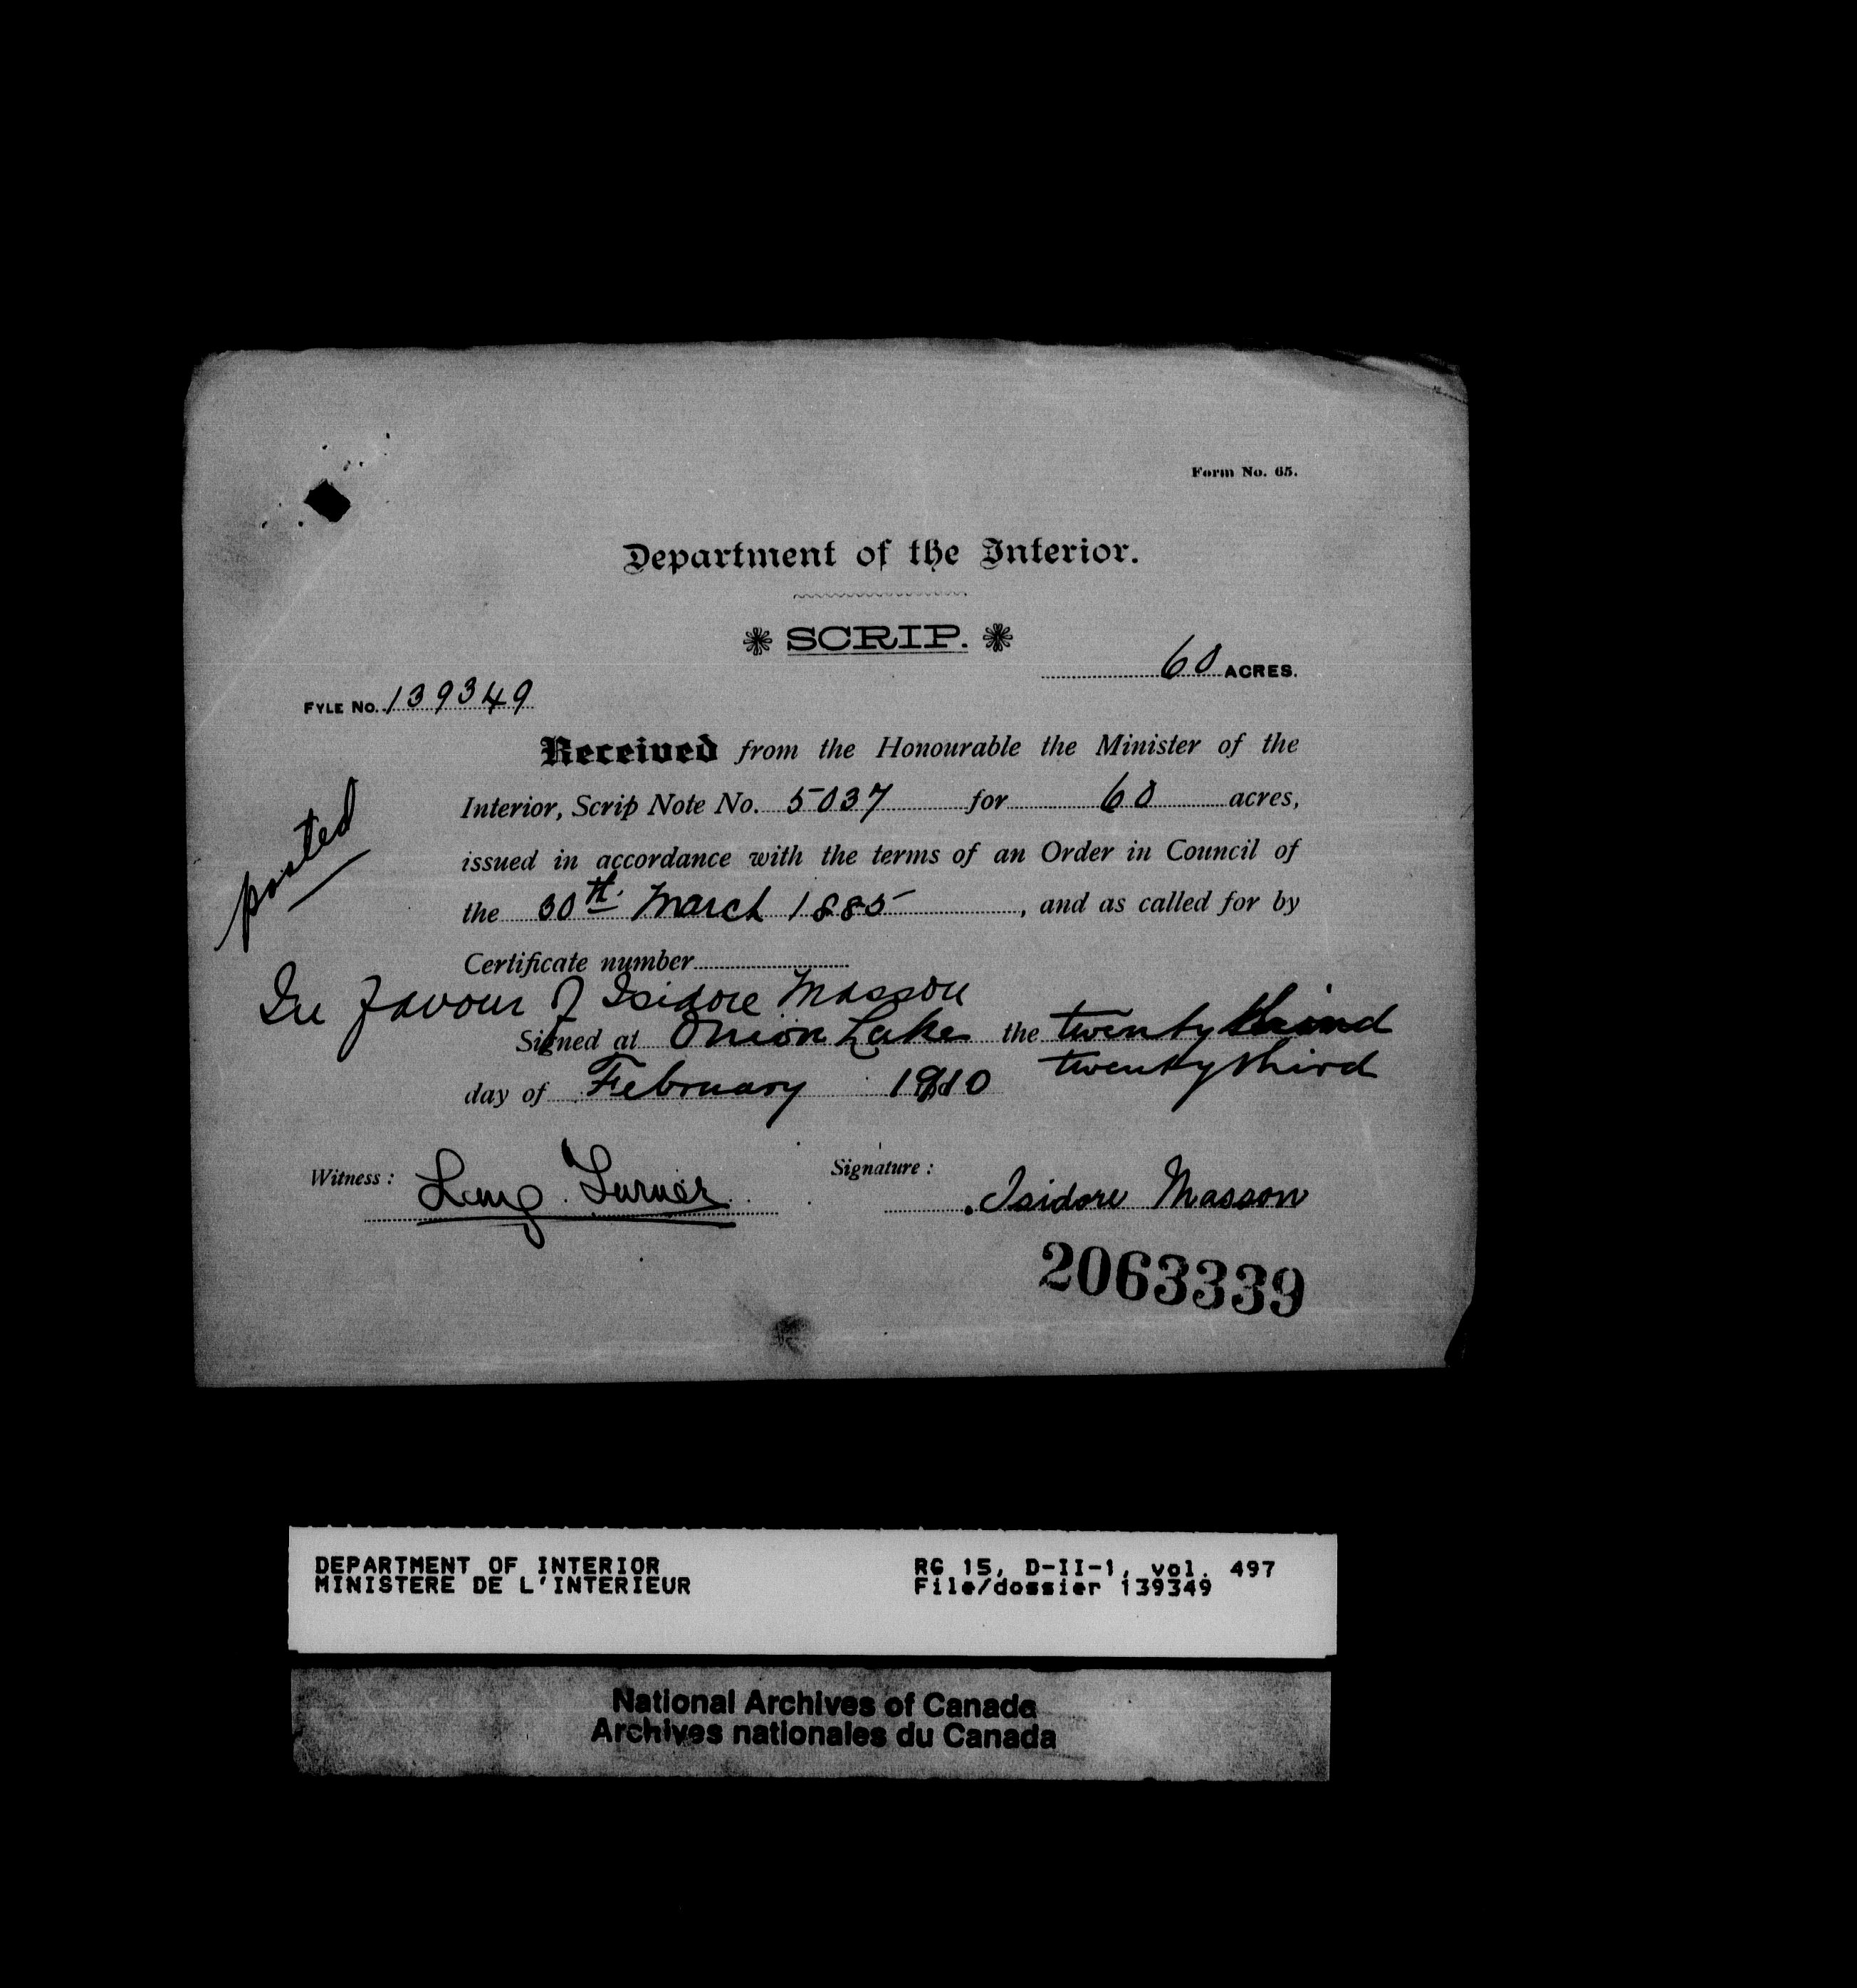 Form No. 65.
Department of the Interior.
SCRIP.
60 ACRES.
FYLE No. 139349
Received from the Honourable the Minister of the
Interior, Scrip Note No. 5037 for 60 acres,
issued in accordance with the terms of an Order in Council of
the 30th March 1885, and as called for by
posted
Certificate number
In favour of Isidore Masson
Signed at Onion Lake the twenty third
twenty third
day of February 1910
Witness: Lang Turner Signature: Isidore Masson
2063339
DEPARTMENT OF INTERIOR RG 15, D-II-1, vol. 497
MINISTERE DE L'INTERIEUR File/dossier 139349
National Archives of Canada
Archives nationales du Canada